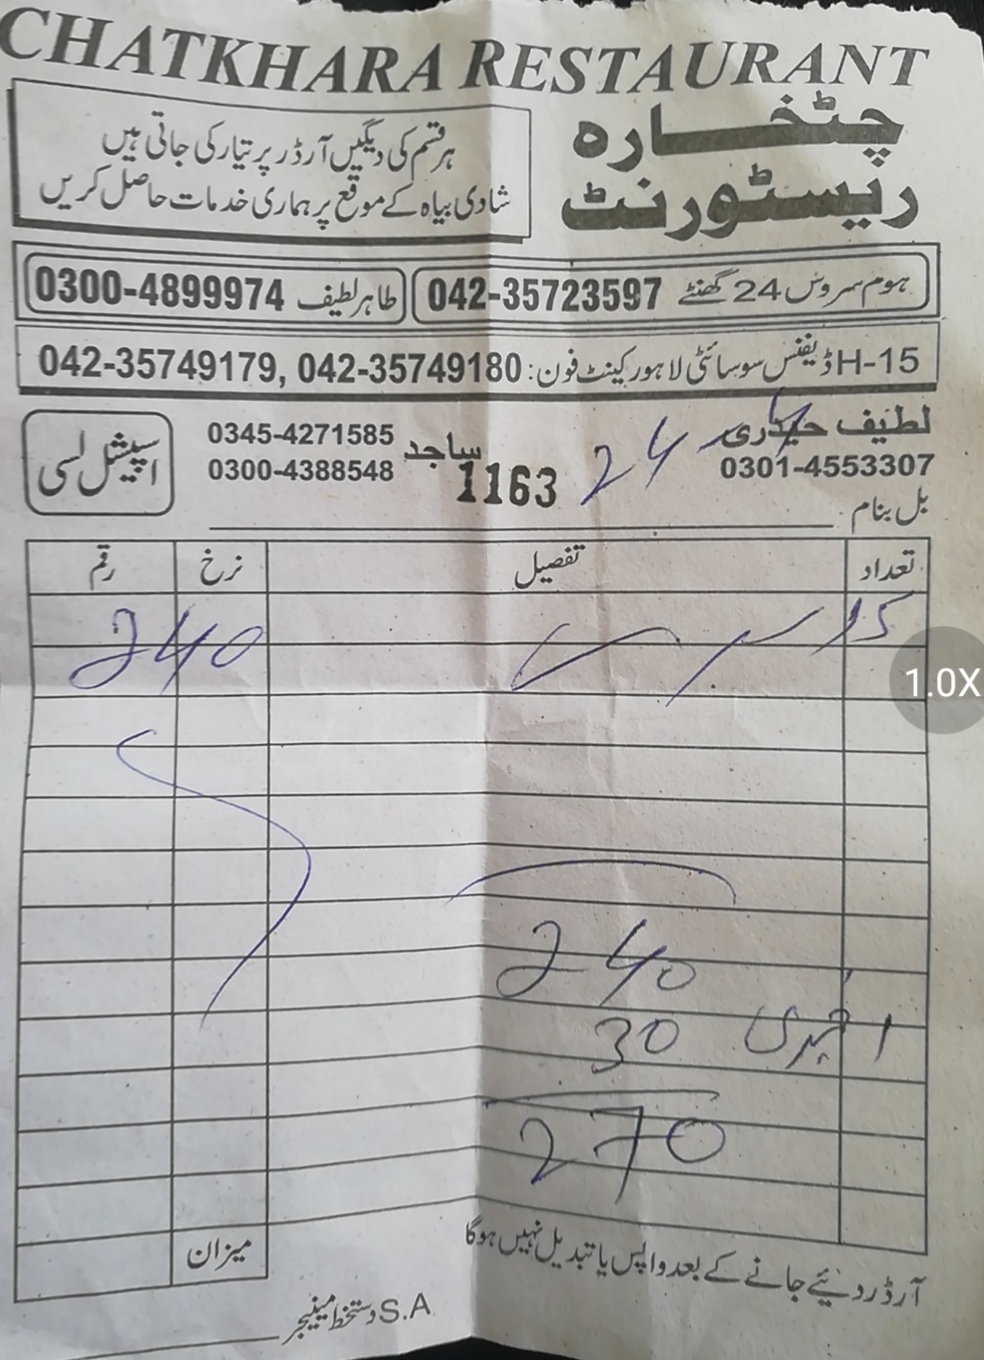 CHATKHARA RESTAURANT
چٹخارہ
ریسٹورنٹ
ہر قسم کی دیگیں آرڈر پر تیار کی جاتی ہیں
شادی بیاہ کے موقع پر ہماری خدمات حاصل کریں
ہوم سروس 24 گھنٹے 042-35723597
طاہر لطیف 0300-4899974
H-15 ڈیفنس سوسائٹی لاہور کینٹ فون: 042-35749179, 042-35749180
لطیف حیدری
0301-4553307
24
1163
ساجد
0345-4271585
0300-4388548
اسپیشل لسی
بل بنام
تعداد تفصیل نرخ رقم
240
240
30
270
میزان
آرڈر دیئے جانے کے بعد واپس یا تبدیل نہیں ہوگا
S.A دستخط مینیجر
1.0X